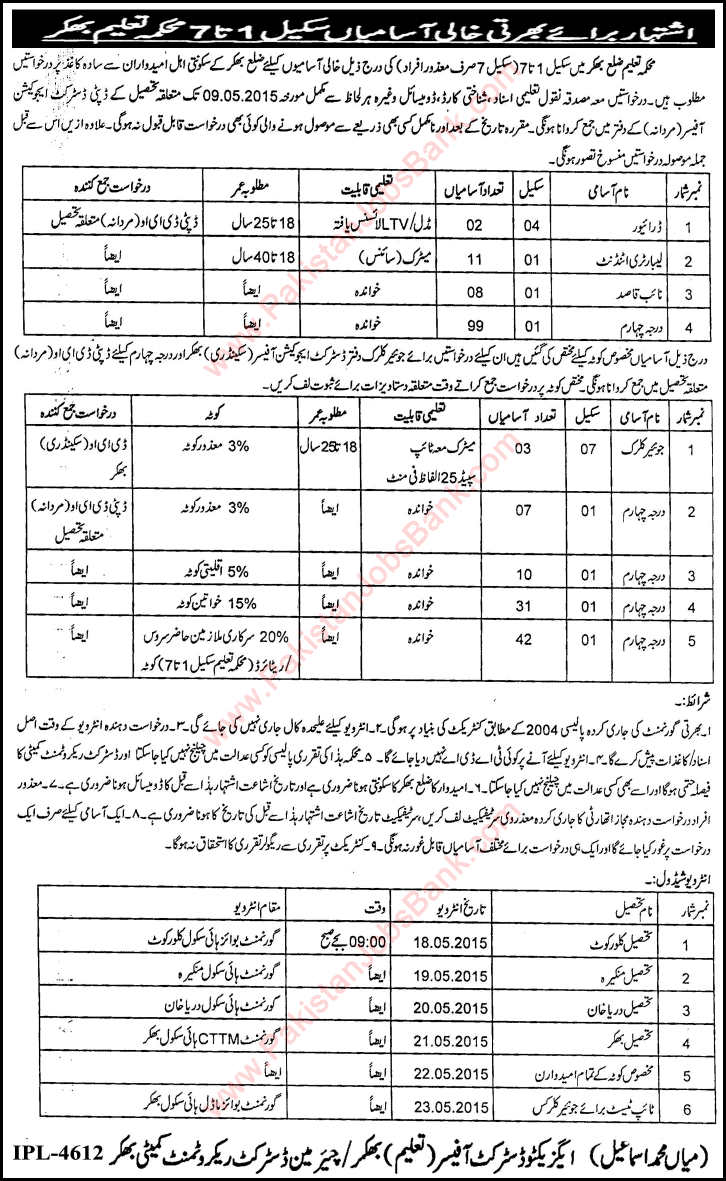 اشتہار برائے بھرتی خالی آسامیاں سکیل 1 تا 7 محکمہ تعلیم بھکر
محکمہ تعلیم ضلع بھکر میں سکیل 1 تا 7 (سکیل 7 صرف معذور افراد) کی درج ذیل خالی آسامیوں کیلئے ضلع بھکر کے سکونتی اہل امیدواران سے سادہ کاغذ پر درخواستیں
مطلوب ہیں۔ درخواستیں معہ مصدقہ نقول تعلیمی اسناد، شناختی کارڈ، ڈومیسائل وغیرہ ہر لحاظ سے مکمل مورخہ 09.05.2015 تک متعلقہ تحصیل کے ڈپٹی ڈسٹرکٹ ایجوکیشن
آفیسر (مردانہ) کے دفتر میں جمع کروانا ہونگی۔ مقررہ تاریخ کے بعد اور نامکمل کسی بھی ذریعے سے موصول ہونے والی کوئی بھی درخواست قابل قبول نہ ہوگی۔ علاوہ ازیں اس سے قبل
جملہ موصولہ درخواستیں منسوخ تصور ہونگی۔
نمبر شمار نام آسامی سکیل تعداد آسامیاں تعلیمی قابلیت مطلوبہ عمر درخواست جمع کنندہ
1 ڈرائیور 04 02 مڈل/LTV لائسنس یافتہ 18 تا 25 سال ڈپٹی ڈی ای او (مردانہ) متعلقہ تحصیل
2 لیبارٹری اٹنڈنٹ 01 11 میٹرک (سائنس) 18 تا 40 سال ایضاً
3 نائب قاصد 01 08 خواندہ ایضاً ایضاً
4 درجہ چہارم 01 99 خواندہ ایضاً ایضاً
درج ذیل آسامیاں مخصوص کوٹہ کیلئے مختص کی گئیں ہیں ان کیلئے درخواستیں برائے جونیئر کلرک دفتر ڈسٹرکٹ ایجوکیشن آفیسر (سیکنڈری) بھکر اور درجہ چہارم کیلئے ڈپٹی ڈی ای او (مردانہ)
متعلقہ تحصیل میں جمع کروانا ہونگی۔ مختص کوٹہ پر درخواست جمع کراتے وقت متعلقہ دستاویزات برائے ثبوت لف کریں۔
نمبر شمار نام آسامی سکیل تعداد آسامیاں تعلیمی قابلیت مطلوبہ عمر کوٹہ درخواست جمع کنندہ
1 جونیئر کلرک 07 03 میٹرک معہ ٹائپ 18 تا 25 سال 3% معذور کوٹہ ڈی ای او (سیکنڈری)
سپیڈ 25 الفاظ فی منٹ بھکر
2 درجہ چہارم 01 07 خواندہ ایضاً 3% معذور کوٹہ ڈپٹی ڈی ای او (مردانہ)
متعلقہ تحصیل
3 درجہ چہارم 01 10 خواندہ ایضاً 5% اقلیتی کوٹہ ایضاً
4 درجہ چہارم 01 31 خواندہ ایضاً 15% خواتین کوٹہ ایضاً
5 درجہ چہارم 01 42 خواندہ ایضاً 20% سرکاری ملازمین حاضر سروس ایضاً
/ریٹائرڈ (محکمہ تعلیم سکیل 1 تا 7) کوٹہ
شرائط:۔
۱۔ بھرتی گورنمنٹ کی جاری کردہ پالیسی 2004 کے مطابق کنٹریکٹ کی بنیاد پر ہوگی ۔۲۔ انٹرویو کیلئے علیحدہ کال جاری نہیں کی جائے گی ۔۳۔ درخواست دہندہ انٹرویو کے وقت اصل
اسناد/کاغذات پیش کرے گا۔ ۴۔ انٹرویو کیلئے آنے پر کوئی ٹی اے ڈی اے نہیں دیا جائے گا۔ ۵۔ محکمہ ہذا کی تقرری پالیسی کو کسی عدالت میں چیلنج نہیں کیا جاسکتا اور ڈسٹرکٹ ریکروٹمنٹ کمیٹی کا
فیصلہ حتمی ہوگا اور اسے بھی کسی عدالت میں چیلنج نہیں کیا جاسکتا۔ ۶۔ امیدوار کا ضلع بھکر کا سکونتی ہونا ضروری ہے اور تاریخ اشاعت اشتہار ہذا سے قبل کا ڈومیسائل ہونا ضروری ہے ۔۷۔ معذور
افراد درخواست دہندہ مجاز اتھارٹی کا جاری کردہ معذوری سرٹیفکیٹ لف کریں، سرٹیفکیٹ تاریخ اشاعت اشتہار ہذا سے قبل کی تاریخ کا ہونا ضروری ہے ۔۸۔ ایک آسامی کیلئے صرف ایک
درخواست پر غور کیا جائے گا اور ایک ہی درخواست برائے مختلف آسامیاں قابل غور نہ ہونگی۔ ۹۔ کنٹریکٹ پر تقرری سے ریگولر تقرری کا استحقاق نہ ہوگا۔
انٹرویو شیڈول:۔
نمبر شمار نام تحصیل تاریخ انٹرویو وقت مقام انٹرویو
1 تحصیل کلورکوٹ 18.05.2015 09:00 بجے صبح گورنمنٹ بوائز ہائی سکول کلورکوٹ
2 تحصیل منکیرہ 19.05.2015 ایضاً گورنمنٹ ہائی سکول منکیرہ
3 تحصیل دریا خان 20.05.2015 ایضاً گورنمنٹ ہائی سکول دریا خان
4 تحصیل بھکر 21.05.2015 ایضاً گورنمنٹ CTTM ہائی سکول بھکر
5 مخصوص کوٹہ کے تمام امیدوارن 22.05.2015 ایضاً ایضاً
6 ٹائپ ٹیسٹ برائے جونیئر کلرکس 23.05.2015 ایضاً گورنمنٹ بوائز ماڈل ہائی سکول بھکر
(میاں محمد اسماعیل) ایگزیکٹو ڈسٹرکٹ آفیسر (تعلیم) بھکر/چیئرمین ڈسٹرکٹ ریکروٹمنٹ کمیٹی بھکر IPL-4612
www.PakistanJobsBank.com
www.PakistanJobsBank.com
www.PakistanJobsBank.com